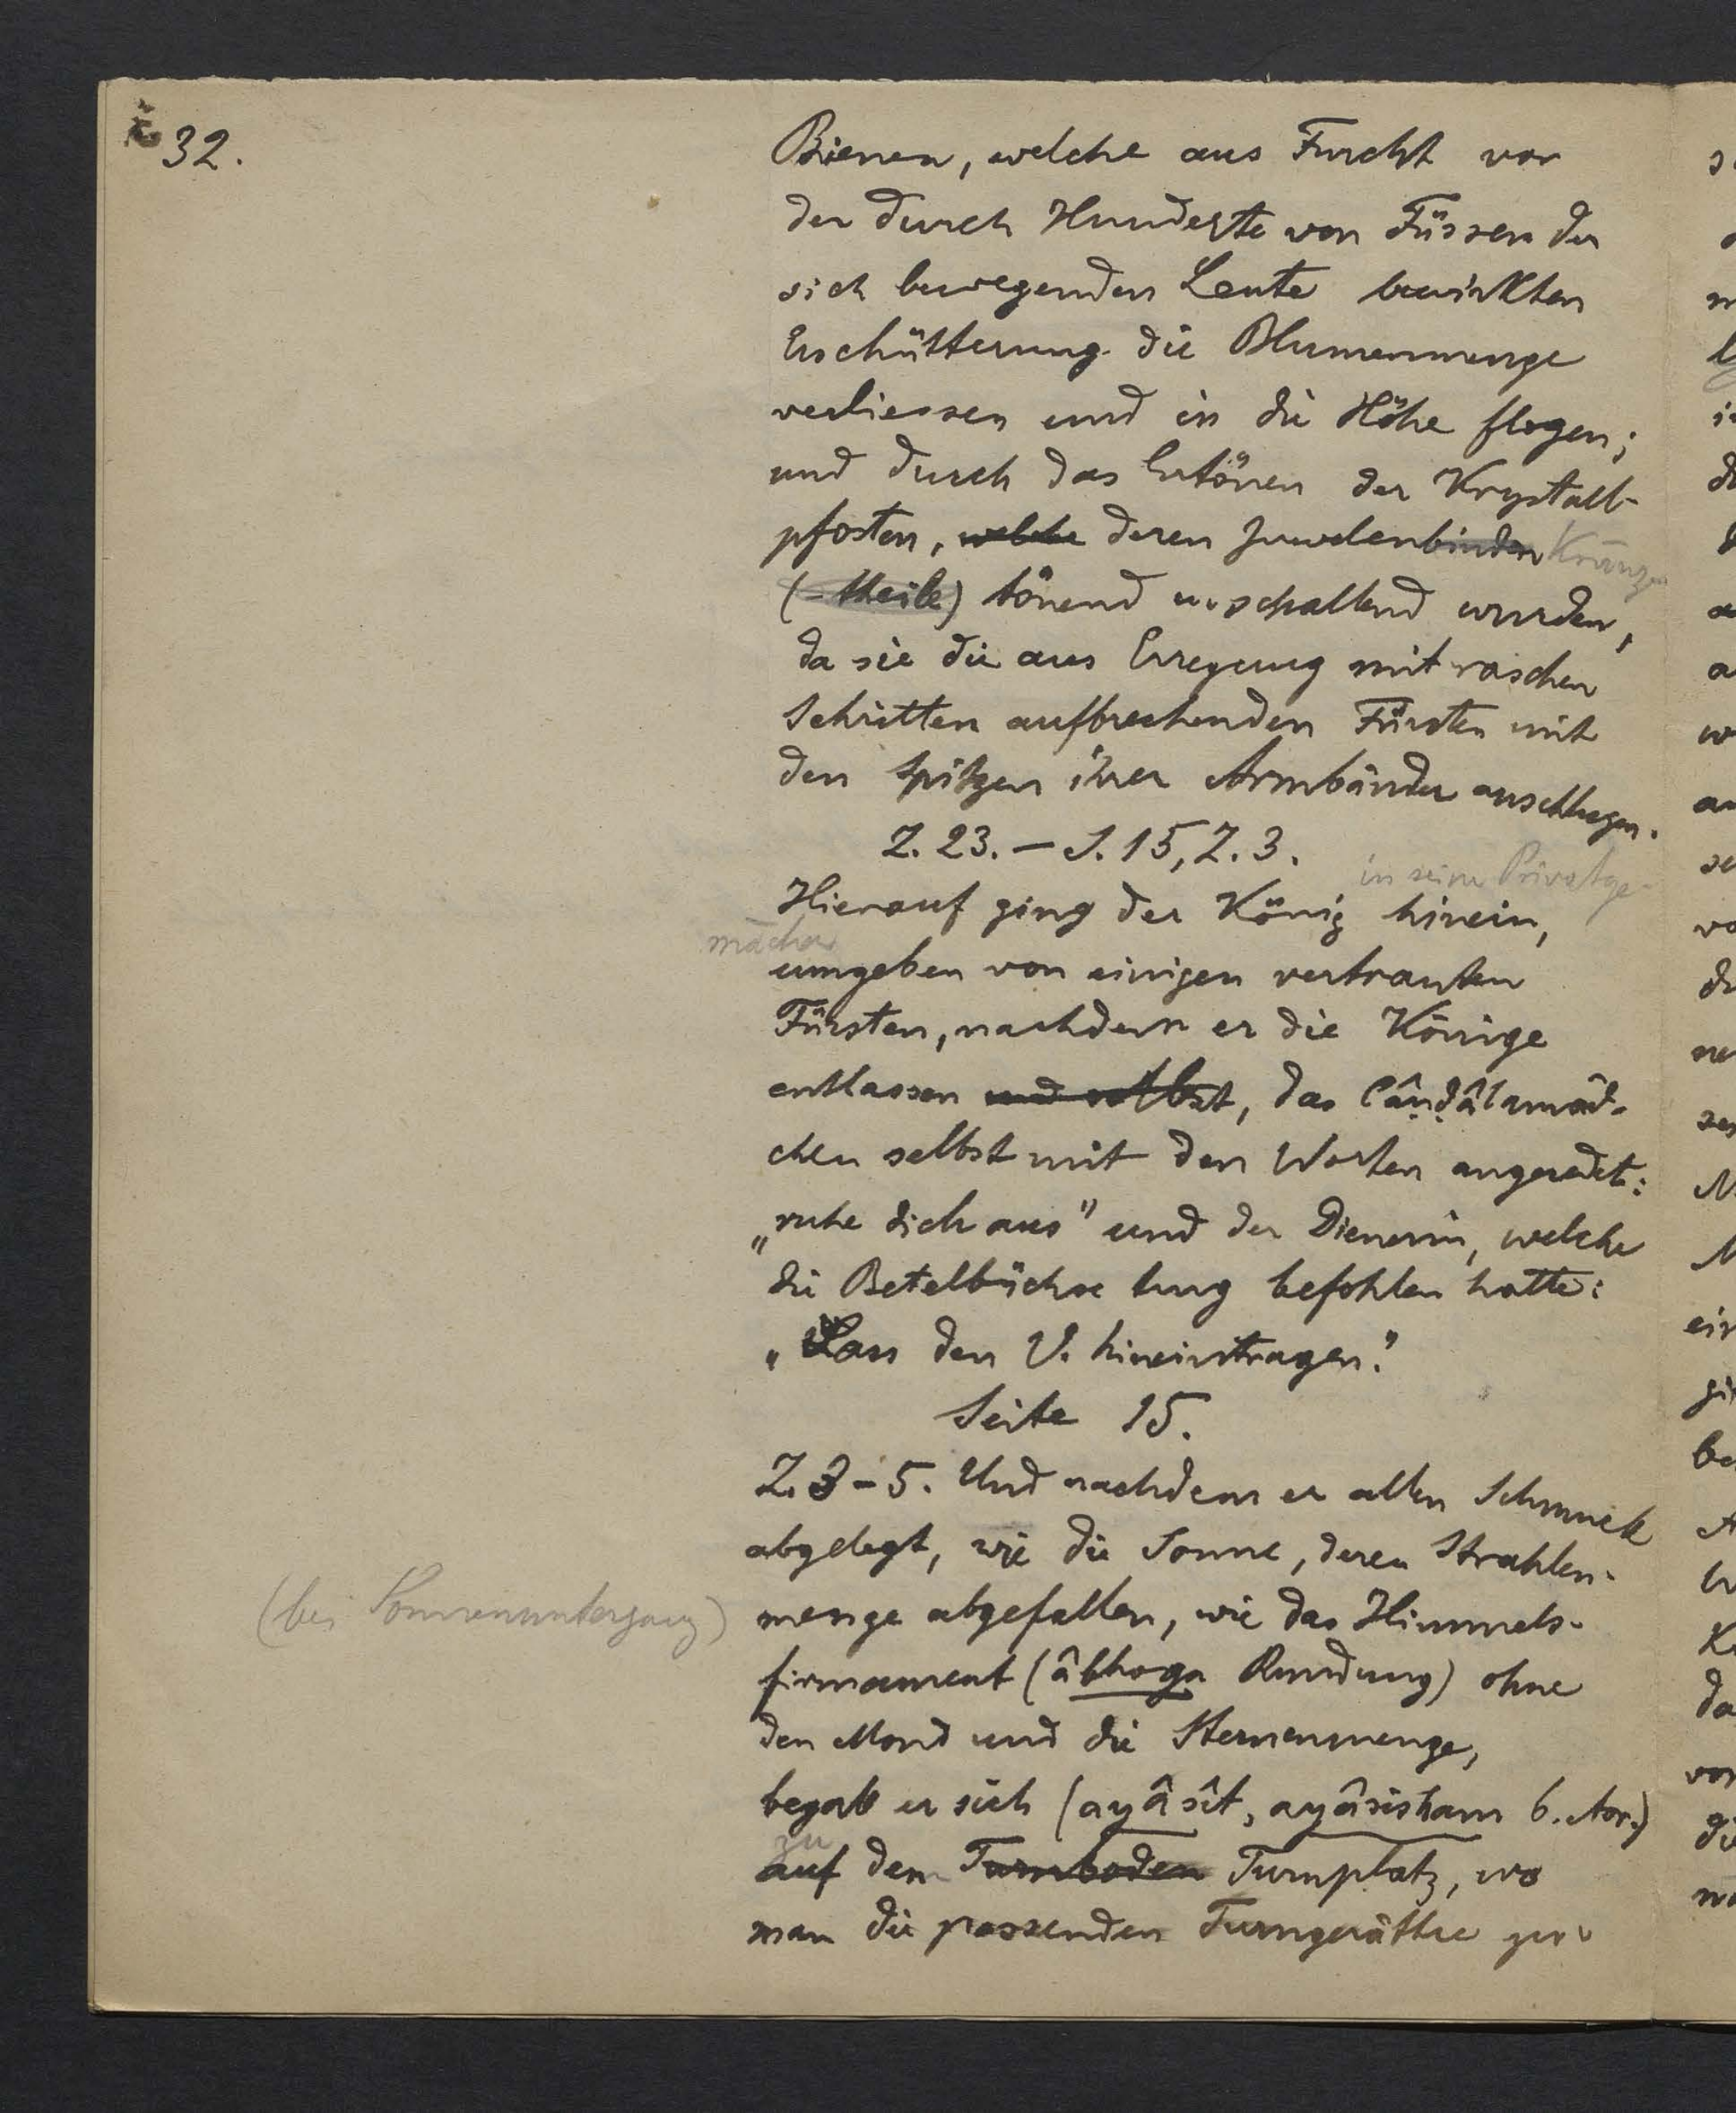 32.
Bienen, welche aus Furcht vor
der durch Hunderte von Füssen der
sich bewegenden Leute bewirkten
Erschütterung die Blumenmenge
verliessen und in die Höhe flogen;
und durch das Ertönen der Krystall-
pfosten, welche deren Juwelenbinden Kränze
(-theile) tönend u. schallend wurden,
da sie die aus Erregung mit raschen
Schritten aufbrechenden Fürsten mit
den Spitzen ihrer Armbänder anschlugen.
Z. 23. – S. 15, Z. 3.
in seine Privatge-
Hierauf ging der König hinein,
mächer
umgeben von einigen vertrauten
Fürsten, nachdem er die Könige
entlassen und selbst, das Câṇḍâlamäd-
chen selbst mit den Worten angeredet:
„ruhe dich aus" und der Dienerin, welche
die Betelbüchse trug befohlen hatte:
„Lass den V. hineintragen."
Seite 15.
Z. 3–5. Und nachdem er allen Schmuck
abgelegt, wie die Sonne, deren Strahlen-
(bei Sonnenuntergang) menge abgefallen, wie das Himmels-
firmament (âbhoga Rundung) ohne
den Mond und die Sternenmenge,
begab er sich (ayâsît, ayâsisham 6. Aor.)
zu
auf dem Turnboden Turnplatz, wo
man die passenden Turngeräthe zu-